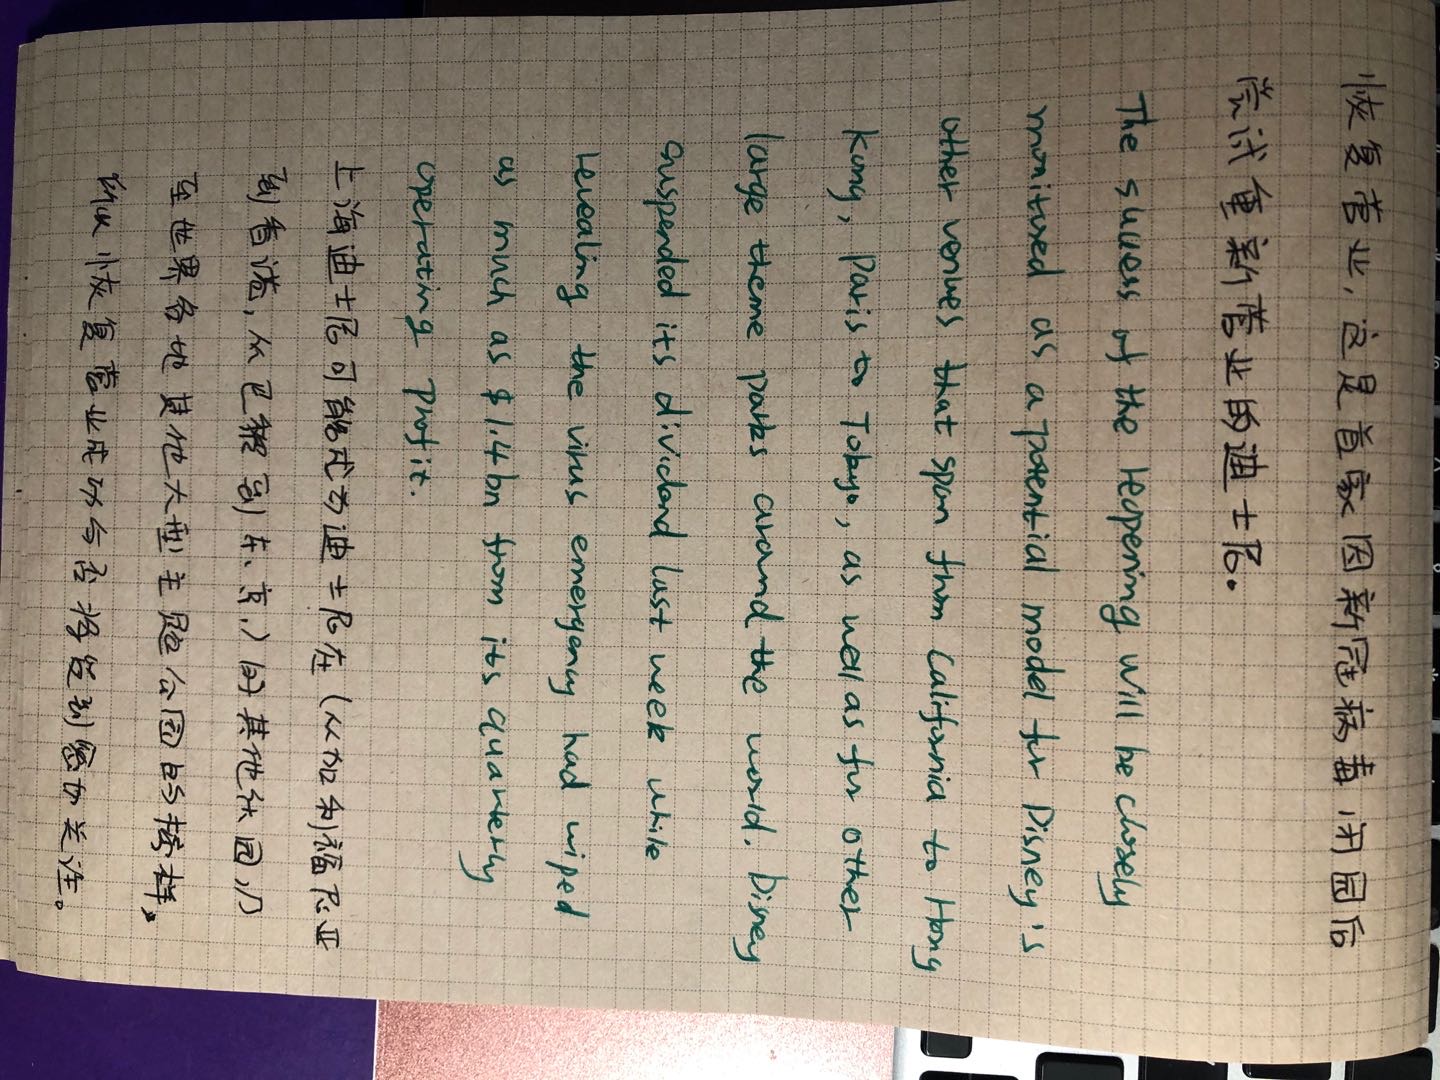 恢复营业，这是首家因新冠病毒闭园后
尝试重新营业的迪士尼。
The success of the reopening will be closely
monitored as a potential model for Disney's
other venues that span from California to Hong
Kong, Paris to Tokyo, as well as for other
large theme parks around the world. Disney
suspended its dividend last week while
revealing the virus emergency had wiped
as much as $1.4bn from its quarterly
operating profit.
上海迪士尼可能成为迪士尼在（从加利福尼亚
到香港，从巴黎到东京）的其他社园，乃
至世界各地其他大型主题公园的榜样。
所以恢复营业成功与否将受到密切关注。